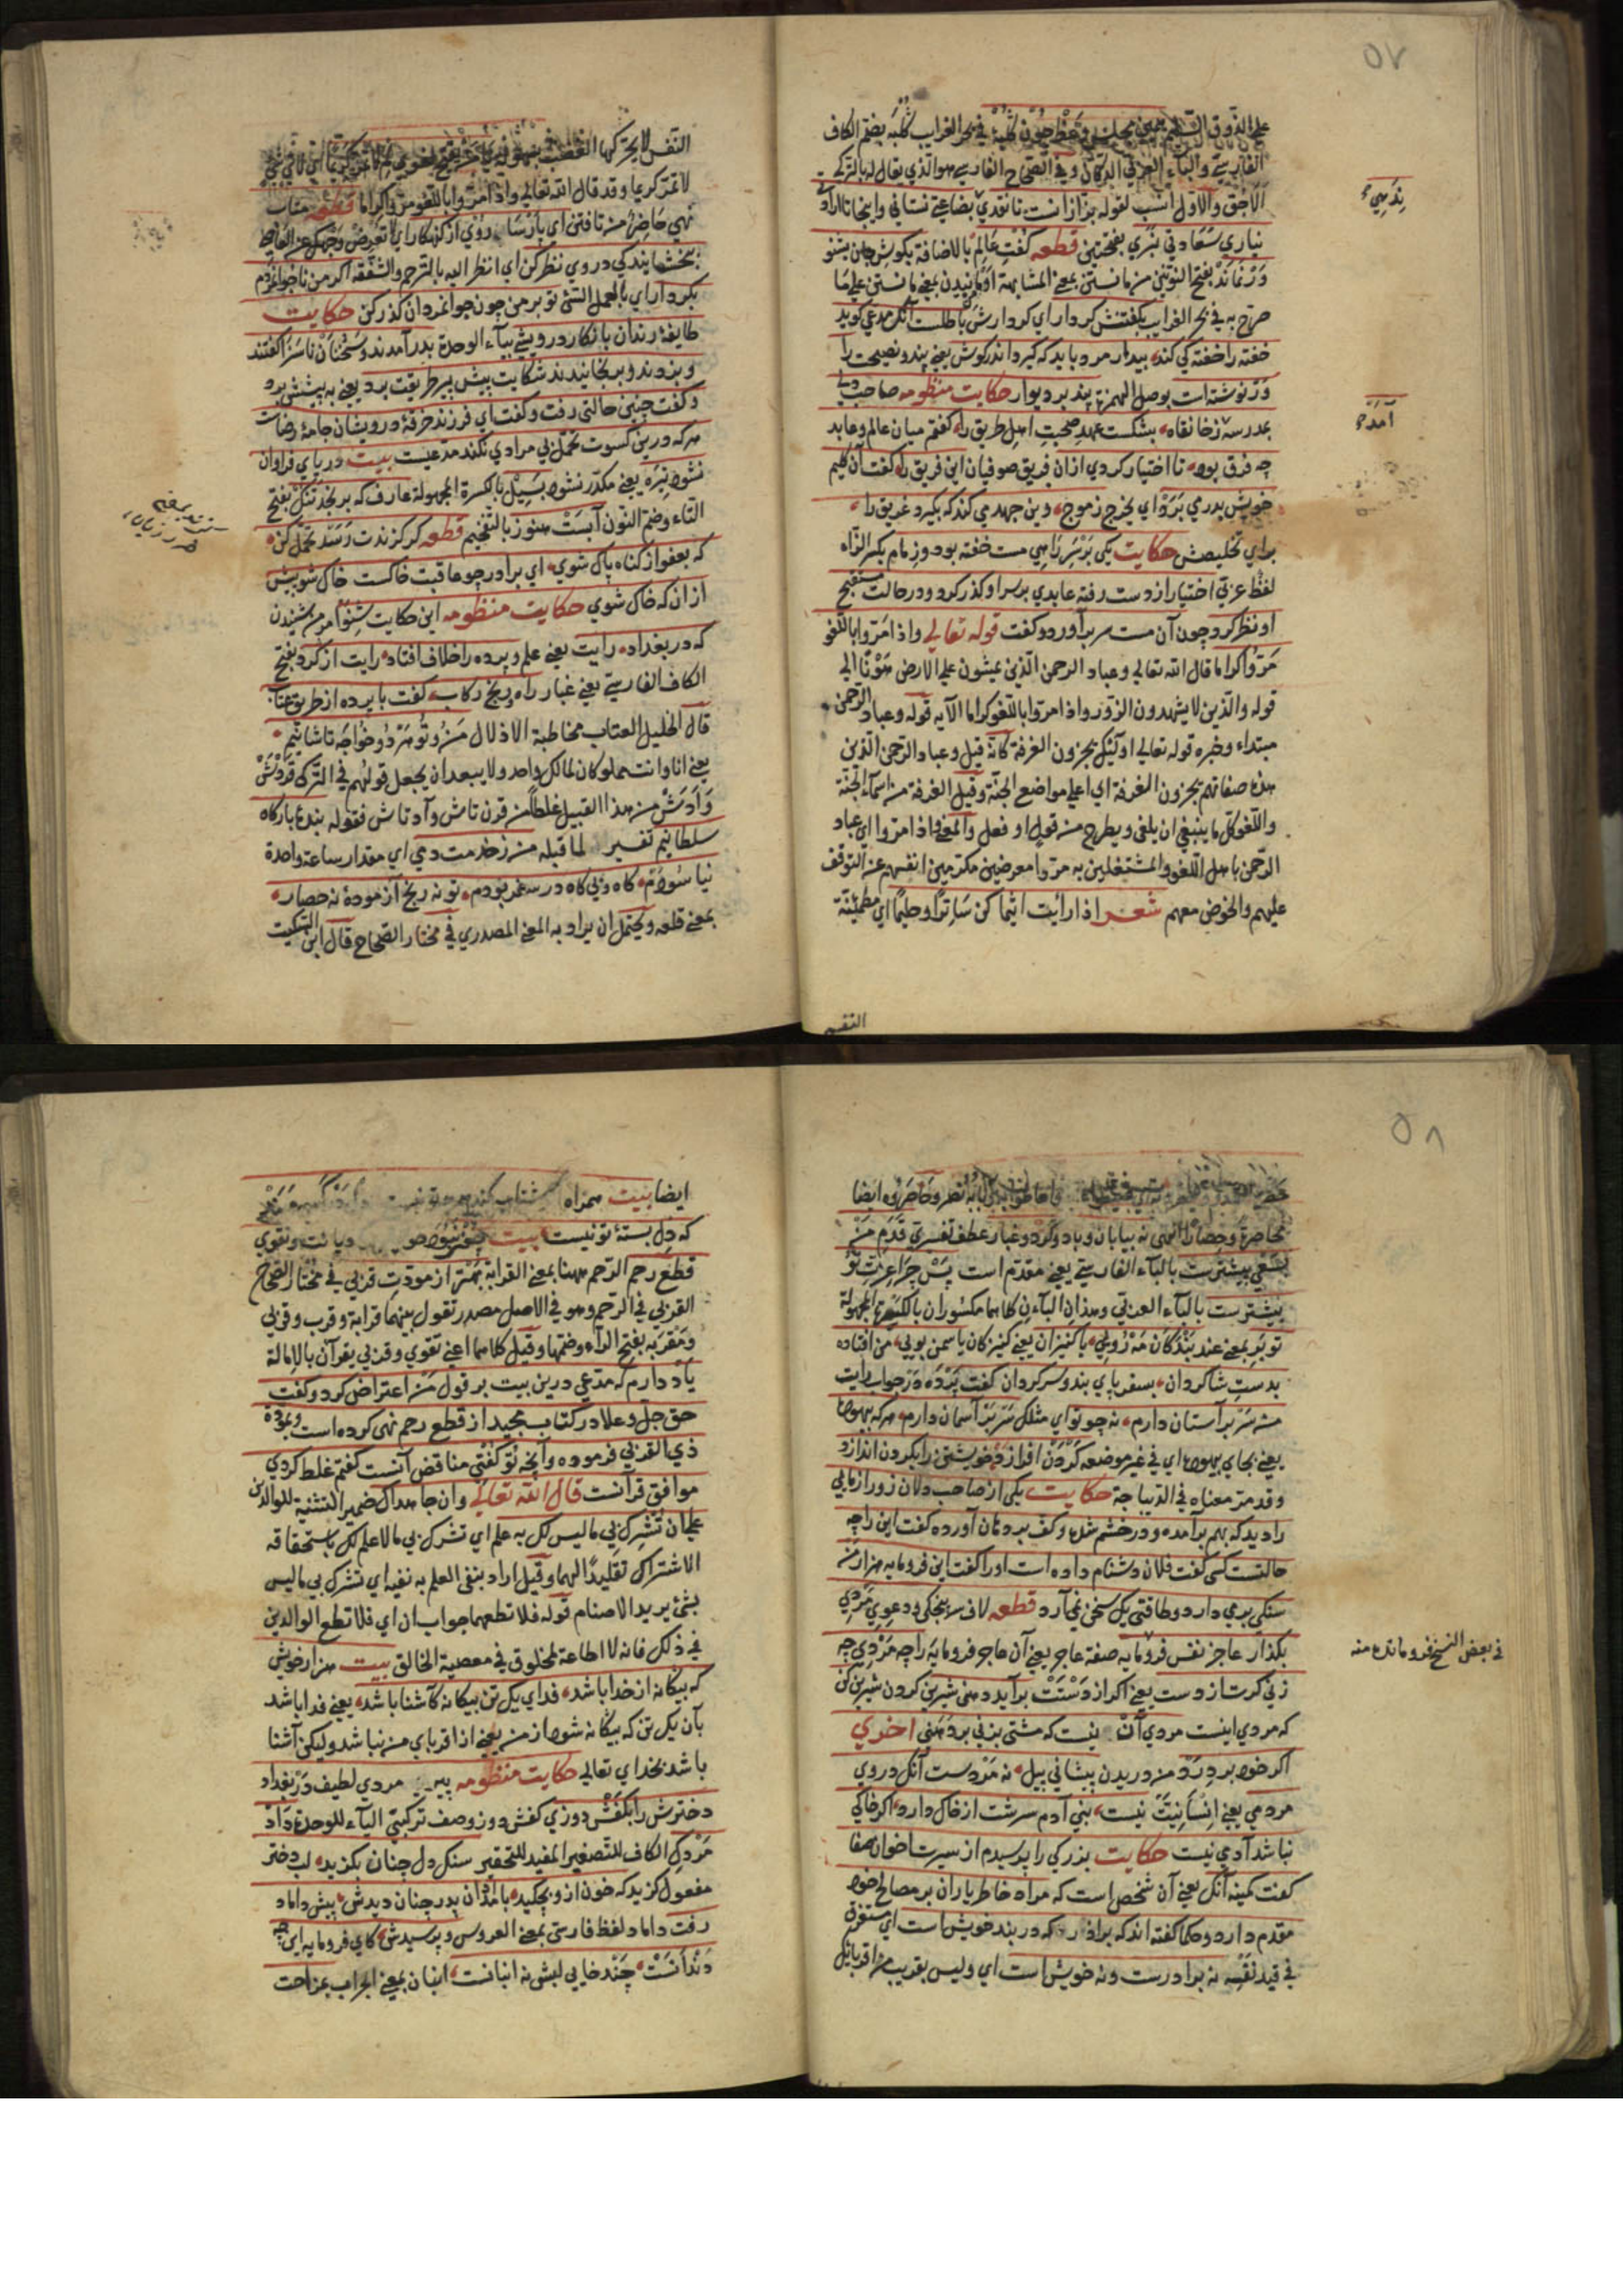 ٥٧
على الذوق السليم مجلس وعظ چون كلبه في بحر الغرايب كلبه بضم الكاف
الفارسية والباء العربي الدكان وفي الصحاح الفارسي هو الذي يقال له بالتركي
الاجق والاول انسب لقوله بزازانست تا نقدي بضاعتي نستاني واينجا تا ارادتي
نياري سعادتي نبري بفتحتين قطعه كفت عالم بالاضافة بكوش جان بشنو
ورنماند بفتح النونين من مانستن بمعنى المشابهة او مانيدن بمعنى مانستن على ما
صرح به في بحر الغرايب بكفتنش كردار اي كردارش باطلست آنك مدعي كويد
خفته را خفته كي كند بيدار مرد بايد كه كيرد اندر كوش يعني پند ونصيحت را
ورنوشته است بوصل الهمزة پند بر ديوار حكايت منظومه صاحب دلي
بمدرسه ز خانقاه بشكست عهد صحبت اهل طريق را كفتم ميان عالم وعابد
چه فرق بود تا اختيار كردي ازان فريق صوفيان اين فريق را كفت آن كليم
خويش بدر مي برد اي يخرج زموج وين جهد مي كند كه بكيرد غريق را
براي تخليصش حكايت يكي بر سر راهي مست خفته بود وزمام بكسر الزاء
لفظ عربي اختيار از دست رفته عابدي بر سر او كذر كرد ودر حالت مستقبح
او نظر كرد چون آن مست سر بر آورد وكفت قوله تعالى واذا مروا باللغو
مروا كراما قال الله تعالى وعباد الرحمن الذين يمشون على الارض هونا الى
قوله والذين لا يشهدون الزور واذا مروا باللغو كراما الآيه قوله وعباد الرحمن
مبتداء وخبره قوله تعالى اولئك يجزون الغرفة كانه قيل وعباد الرحمن الذين
هذه صفاتهم يجزون الغرفة اي اعلى مواضع الجنة وقيل الغرفة من اسماء الجنة
واللغو كل ما ينبغي ان يلغى ويطرح من قول او فعل والمعنى واذا مروا اي عباد
الرحمن باهل اللغو والمشتغلين به مروا معرضين مكرمين انفسهم عن التوقف
عليهم والخوض معهم شعر اذا رأيت اثيما كن ساترا وحليما اي مطمئنة
آمده
النفس
النفس لا يحركها الغضب
لا تمر كريما وقد قال الله تعالى واذا مروا باللغو مروا كراما قطعه متاب
نهي حاضر من تافتن اي بارسا روي از كنهكار اي لا تعرض وجهك عن العاصي
ببخشايندكي در وي نظر كن اي انظر اليه بالترحم والشفقة اكر من ناجوانمردم
بكردار اي بالعمل السيئ تو بر من چون جوانمردان كذر كن حكايت
طايفة رندان بانكار درويشي بياء الوحدة بدر آمدند وسخنان ناسزا كفتند
وبزدند وبرنجانيدند شكايت پيش پير طريقت برد يعني به پيشش برد
وكفت چنين حالتي رفت وكفت اي فرزند خرقه درويشان جامه رضاست
هر كه درين كسوت تحمل بي مرادي نكند مدعيست بيت درياي فراوان
نشود تيره يعني مكدر نشود بسيل بالكسرة المجهولة عارف كه برنجد تنك بفتح
التاء وضم النون آبست هنوز بالتفخيم قطعه كر كزندت رسد تحمل كن
كه بعفو از كناه پاك شوي اي برادر چو عاقبت خاكست خاك شو پيش
ازان كه خاك شوي حكايت منظومه اين حكايت شنو امر من شنيدن
كه در بغداد رايت يعني علم وپرده را خلاف افتاد رايت از كرد بفتح
الكاف الفارسية يعني غبار راه ورنج ركاب كفت با پرده از طريق عتاب
قال الخليل العتاب مخاطبة الاذلال من وتو هر دو خواجه تاشانيم
يعني انا وانت مملوكان لمالك واحد ولا يبعد ان يجعل قولهم في التركي قردش
وآدش من هذا القبيل غلطا من قرن تاش وآد تاش فقوله بنده باركاه
سلطانيم تفسير لما قبله من ز خدمت دمي اي مقدار ساعة واحدة
نياسودم كاه وبي كاه در سفر بودم تو نه رنج آزموده نه حصار
بمعنى قلعه ويحتمل ان يراد به المعنى المصدري في مختار الصحاح قال ابن السكيت
٥٨
محاصرة وحصارا انتهى نه بيابان وباد وكرد وغبار عطف تفسيري قدم من
بسعي پيشترست بالباء الفارسية يعني مقدم است پس چرا عزت تو
بيشترست بالباء العربي وهذان الباءان كلاهما مكسوران بالكسرة المجهولة
تو بر بمعنى عند بندكان مه رويي با كنيزان يعني كنيزكان ياسمن بويي من افتاده
بدست شاكردان بسفر پاي بند وسر كردان كفت پرده در جواب رايت
من سر بر آستان دارم نه چو تو اي مثلك سر بر آسمان دارم هر كه بيهوده
يعني بجاي بيهوده اي في غير موضعه كردن افرازد خويشتن را بكردن اندازد
وقد مر معناه في الديباجة حكايت يكي از صاحب دلان زور آزمايي
را ديد كه بهم برآمده ودر خشم شده وكف بر دهان آورده كفت اين را چه
حالتست كسي كفت فلان دشنام داده است اورا كفت اين فرومايه هزار من
سنك برمي دارد وطاقت يك سخن نمي آرد قطعه لاف سر پنجكي ودعوي مردي
بكذار عاجز نفس فرومايه صفة عاجز يعني آن عاجز فرومايه را چه مردي چه
زني كرت از دست يعني اكر از دستت برآيد دهني شيرين كردن شيرين كن
كه مردي اينست مردي آن نيست كه مشتي بزني بر دهني اخرى
اكر خود بردرد من دريدن پيشاني پيل نه مردست آنك در وي
مردمي يعني انسانيت نيست بني آدم سرشت از خاك دارد اكر خاكي
نباشد آدمي نيست حكايت بزركي را پرسيدم از سيرت اخوان صفا
كفت كمينه آنك يعني آن شخص است كه مراد خاطر ياران بر مصالح خود
مقدم دارد وحكما كفته اند كه برادر كه در بند خويش است اي مستغرق
في قيد نفسه نه برادرست ونه خويش است اي وليس بقريب من اقربائك
في بعض النسخ فرومانده منه
ايضا بيت همراه
كه دل بسته تو نيست بيت چون نبود خويش را ديانت وتقوي
قطع رحم الرحم ههنا بمعنى القرابة بهتر از مودت قربي في مختار الصحاح
القربى في الرحم وهو في الاصل مصدر تقول بينهما قرابة وقرب وقربى
ومقربه بفتح الراء وضمها وقيل كلاهما اعني تقوي وقربي يقرآن بالامالة
ياد دارم كه مدعي درين بيت بر قول من اعتراض كرد وكفت
حق جل وعلا در كتاب مجيد از قطع رحم نهي كرده است وبمودة
ذي القربى فرموده وآنچه تو كفتي مناقض آنست كفتم غلط كردي
موافق قرآنست قال الله تعالى وان جاهداك ضمير التثنية للوالدين
على ان تشرك بي ما ليس لك به علم اي تشرك بي ما لا علم لك باستحقاقه
الاشتراك تقليدا لهما وقيل اراد بنفي العلم به نفيه اي تشرك بي ما ليس
بشئ يريد الاصنام قوله فلا تطعهما جواب ان اي فلا تطع الوالدين
في ذلك فانه لا اطاعة لمخلوق في معصية الخالق بيت هزار خويش
كه بيكانه از خدا باشد فداي يك تن بيكانه كآشنا باشد يعني فدا باشد
بآن يك تن كه بيكانه شود از من يعني از اقرباي من نباشد وليكن آشنا
باشد بخداي تعالى حكايت منظومه پير مردي لطيف در بغداد
دخترش را بكفش دوزي كفش دوز وصف تركيبي الياء للوحدة داد
مردك الكاف للتصغير المفيد للتحقير سنك دل چنان بكزيد لب دختر
مفعول كزيد كه خون ازو بچكيد بامدادان پدر چنان ديدش پيش داماد
رفت داماد لفظ فارسي بمعنى العروس وپرسيدش كاي فرومايه اين چه
دندانست چند خايي لبش نه انبانست انبان بمعنى الجراب بمزاحت